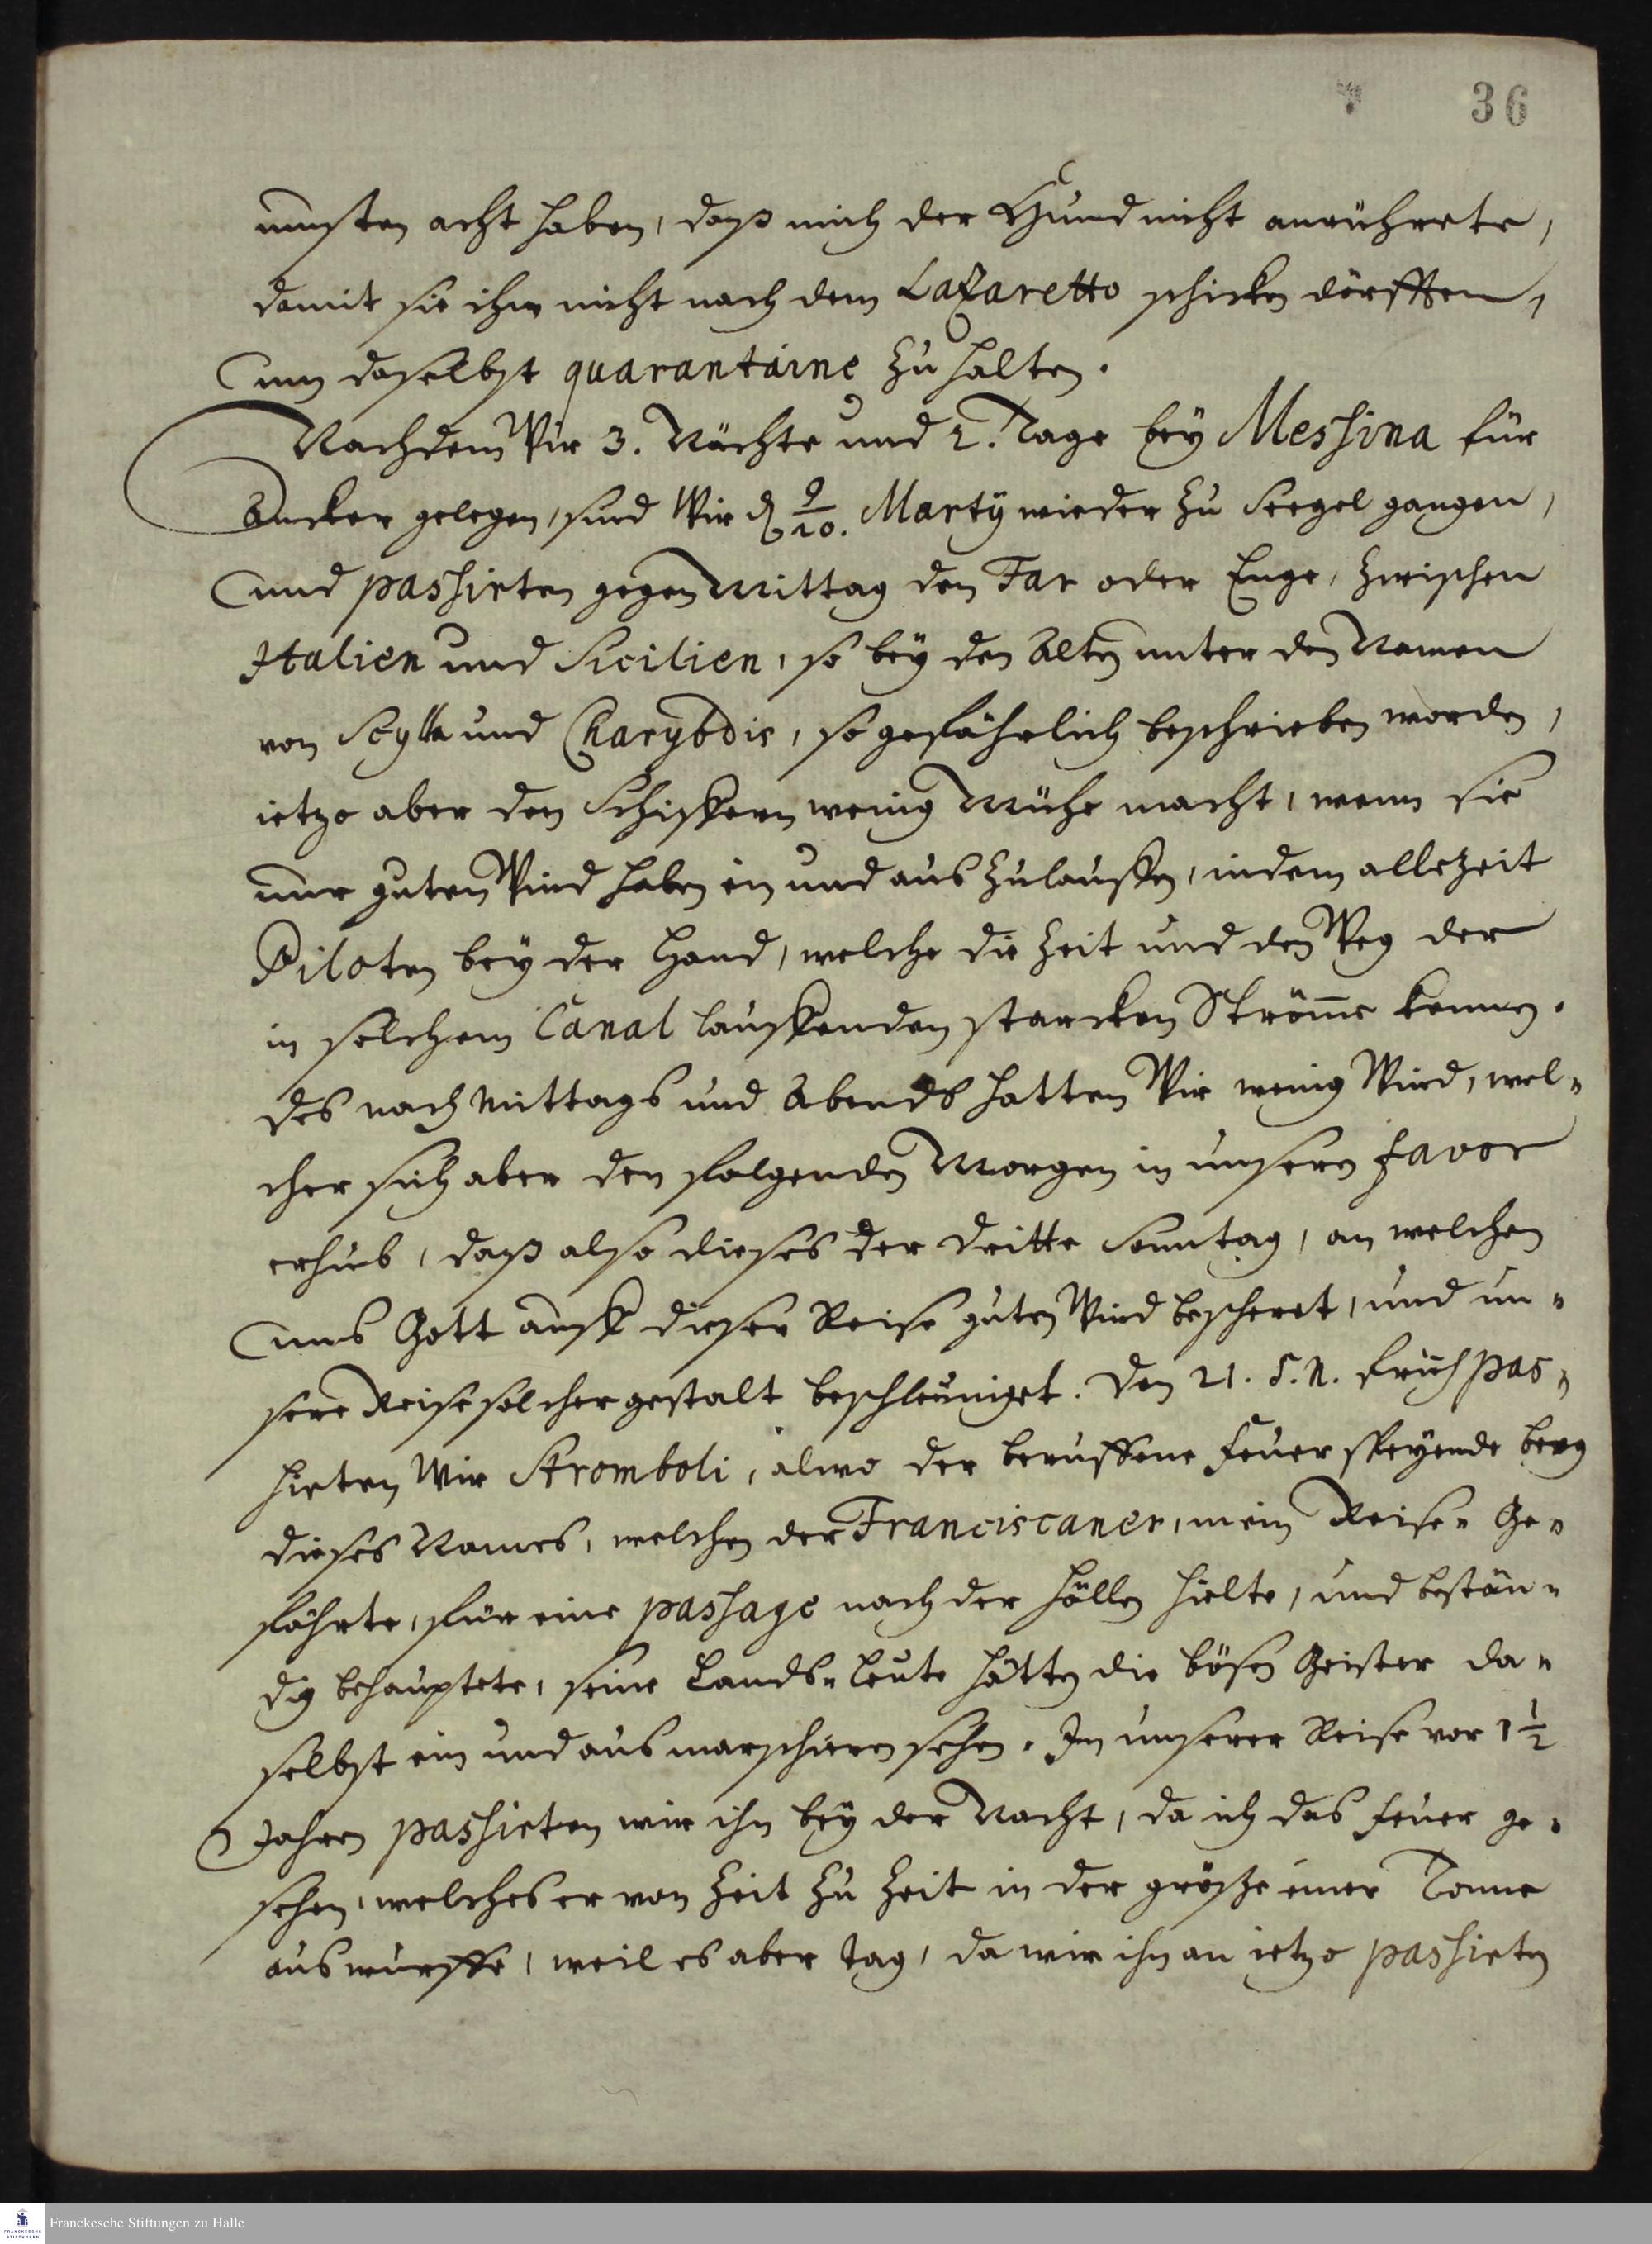 36
musten acht haben, daß mich der Hund nicht anrührete,
damit sie ihn nicht nach dem Lazaretto schicken dörfften,
um daselbst quarantaine zu halten.
Nachdem Wir 3. Nächte und 2. Tage bey Messina für
Ancker gelegen, sind Wir d 9/20. Martÿ wieder zu Seegel gangen,
und passirten gegen Mittag den Far oder Enge, zwischen
Italien und Sicilien, so beÿ den Alten unter den Namen
von Scylla und Charybdis, so gefährlich beschrieben worden,
ietzo aber den Schiffern wenig Mühe macht, wenn sie
nur guten Wind haben ein und aus zulauffen, indem allezeit
Piloten beÿ der Hand, welche die Zeit und den Weg der
in solchem Canal lauffenden starcken Ströme kennen.
des nach Mittags und Abends hatten Wir wenig Wind, wel-
cher sich aber den folgenden Morgen in unsern favor
erhub, daß also dieses der dritte Sonntag, an welchen
uns Gott auff dieser Reise guten Wind bescheret, und un-
sere Reise solcher gestalt beschleuniget. Den 21. S.N. früh pas-
sirten Wir Stromboli, alwo der beruffene Feuer speÿende berg
dieses Names, welchen der Franciscaner, mein Reise-Ge-
fährte, für eine passage nach der Höllen hielte, und bestän-
dig behauptete, seine Lands-leute hätten die bösen Geister da-
selbst ein und aus marschiren sehen. In unserer Reise vor 1 1/2
Jahren passirten wir ihn beÿ der Nacht, da ich das Feuer ge-
sehen, welches er von Zeit zu Zeit in der größe einer Tonne
auswurffe, weil es aber tag, da wir ihn an ietzo passirten
Franckesche Stiftungen zu Halle